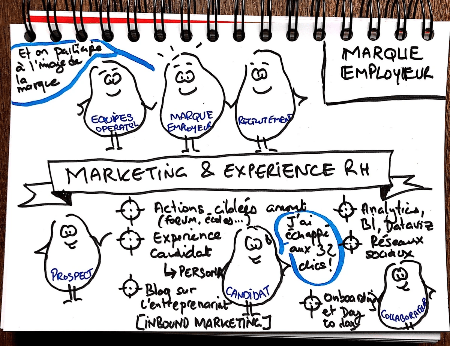 Et on participe
à l'image de
la
marque
MARQUE
EMPLOYEUR
EQUIPES
MARQUE
EMPLOYEUR
RECRUTEMENT
MARKETING & EXPERIENCE RH
Actions ciblées amont
(forum, écoles...)
Experience
candidat
↳ PERSONA
Blog sur
l'entreprenariat
[INBOUND MARKETING]
PROSPECT
CANDIDAT
J'ai
échappé
aux 32
clics!
Analytics,
BI, Dataviz
Réseaux
sociaux
Onboarding
et Day
to day
COLLABORATEUR